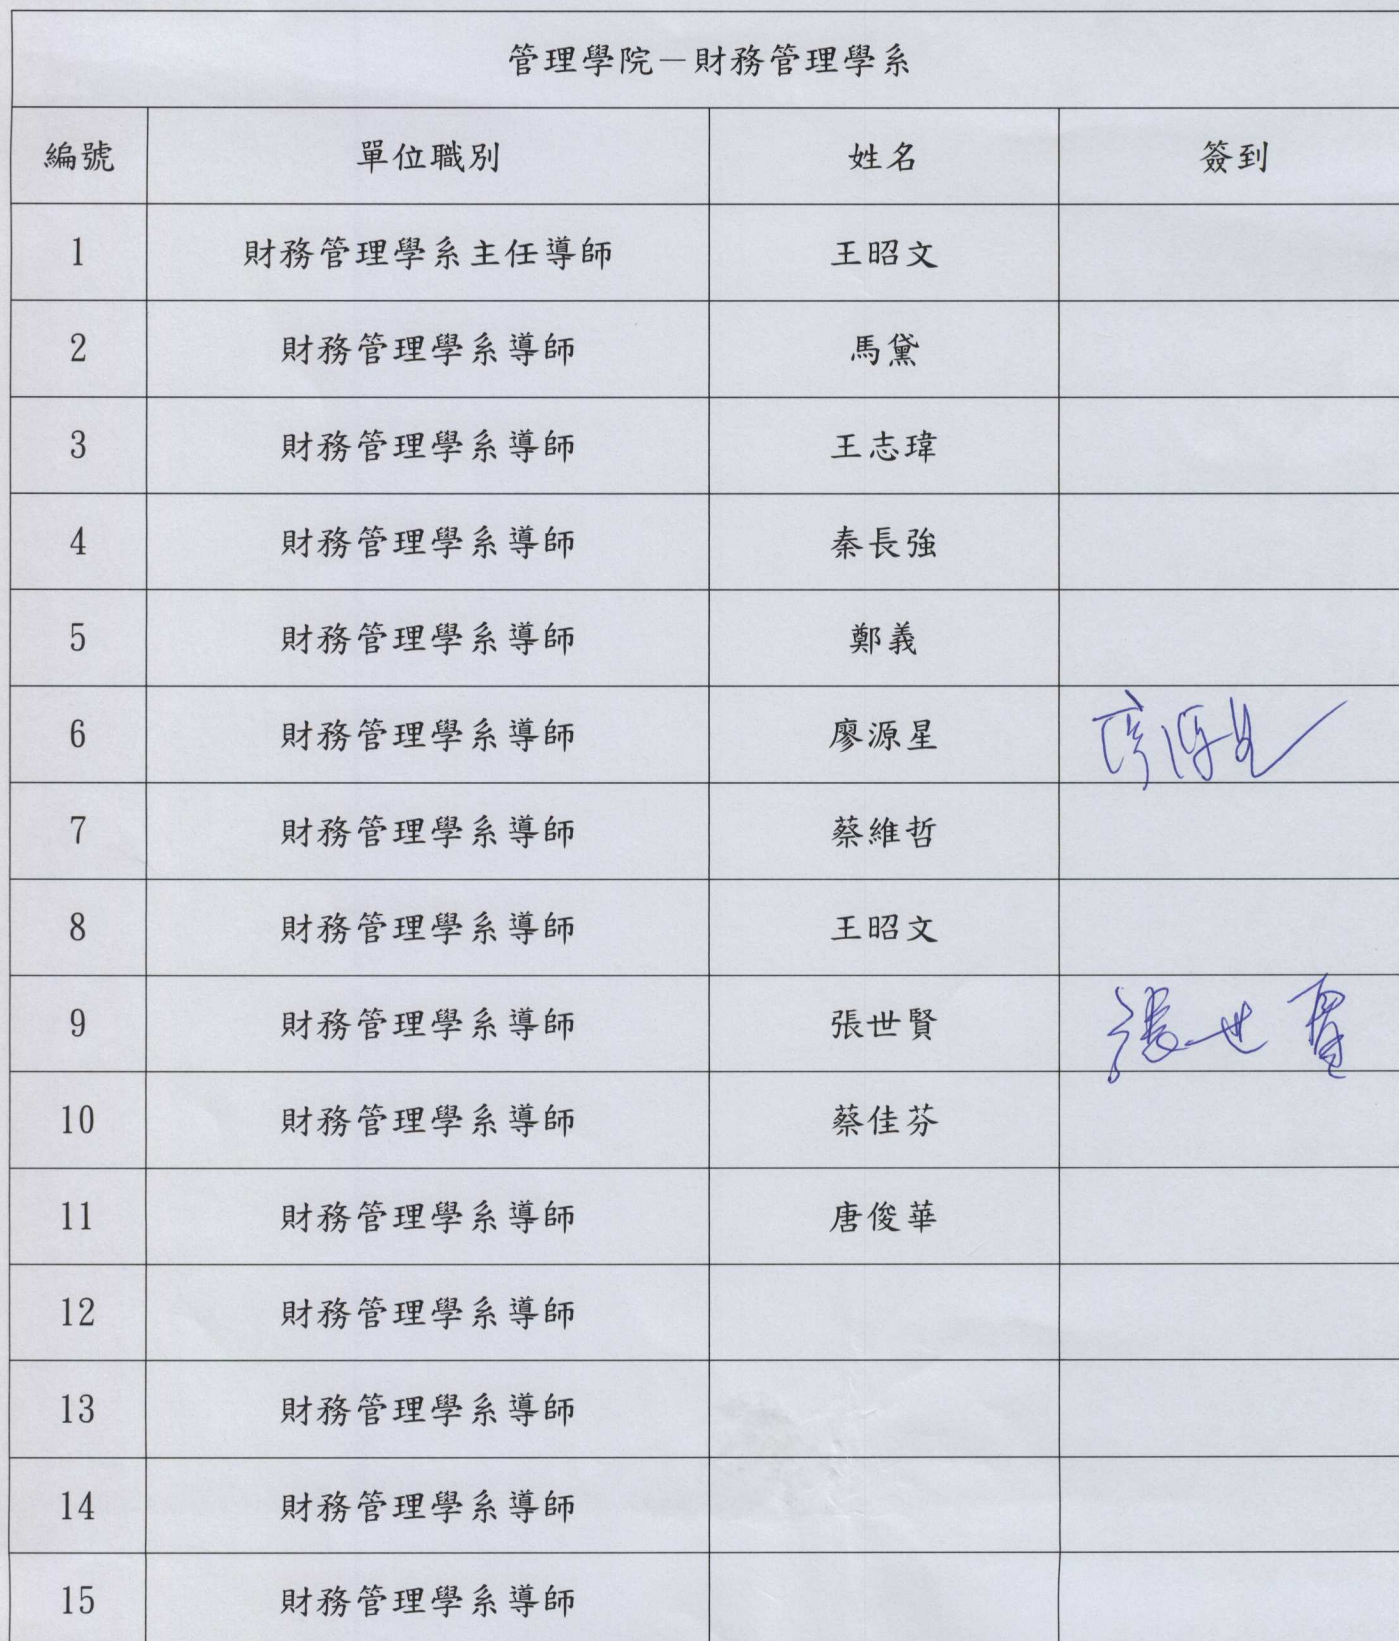 管理學院－財務管理學系
編號 單位職別 姓名 簽到
1 財務管理學系主任導師 王昭文
2 財務管理學系導師 馬黛
3 財務管理學系導師 王志瑋
4 財務管理學系導師 秦長強
5 財務管理學系導師 鄭義
6 財務管理學系導師 廖源星 廖源星
7 財務管理學系導師 蔡維哲
8 財務管理學系導師 王昭文
9 財務管理學系導師 張世賢 張世賢
10 財務管理學系導師 蔡佳芬
11 財務管理學系導師 唐俊華
12 財務管理學系導師
13 財務管理學系導師
14 財務管理學系導師
15 財務管理學系導師